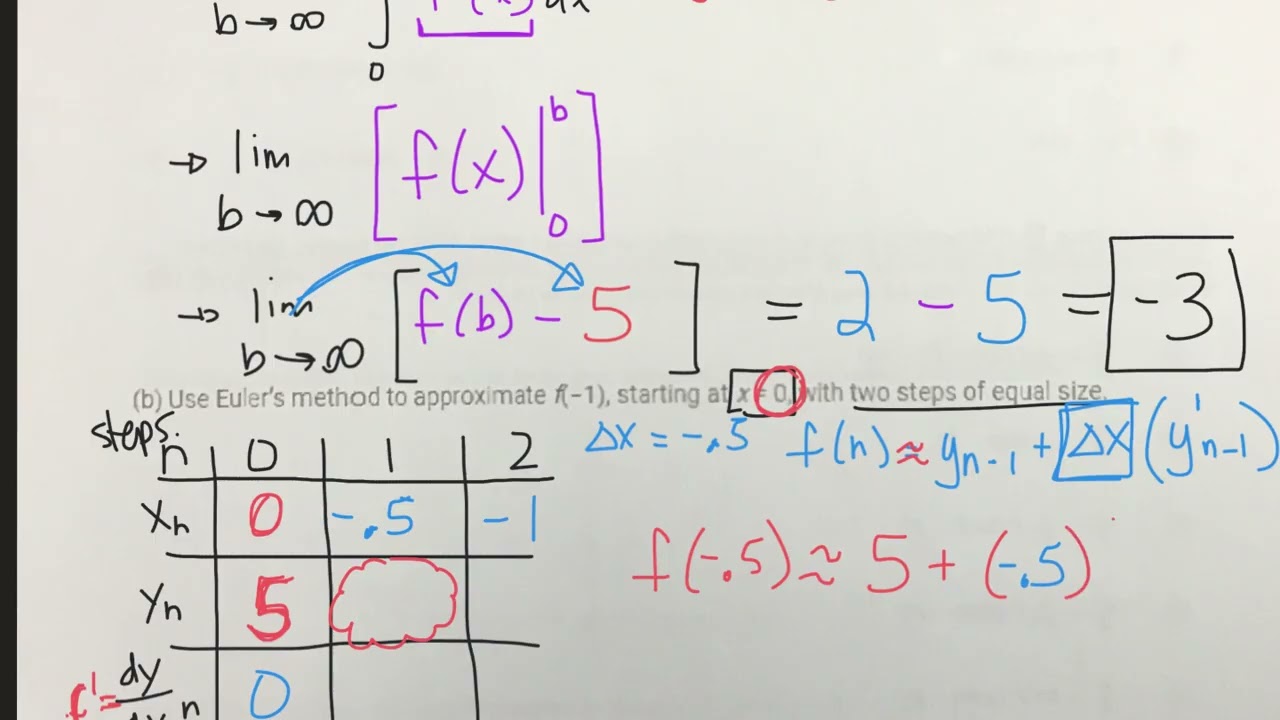 b → ∞ ∫ f'(x) dx
0
→ lim [ f(x) | b
b → ∞ 0 ]
→ lim [ f(b) - 5 ] = 2 - 5 = -3
b → ∞
(b) Use Euler's method to approximate f(-1), starting at x = 0, with two steps of equal size.
steps:
n | 0 | 1 | 2
Δx = -.5 f(n) ≈ yn-1 + Δx (y'n-1)
Xn | 0 | -.5 | -1
f(-.5) ≈ 5 + (-.5)
Yn | 5
f' = dy/dx n | 0